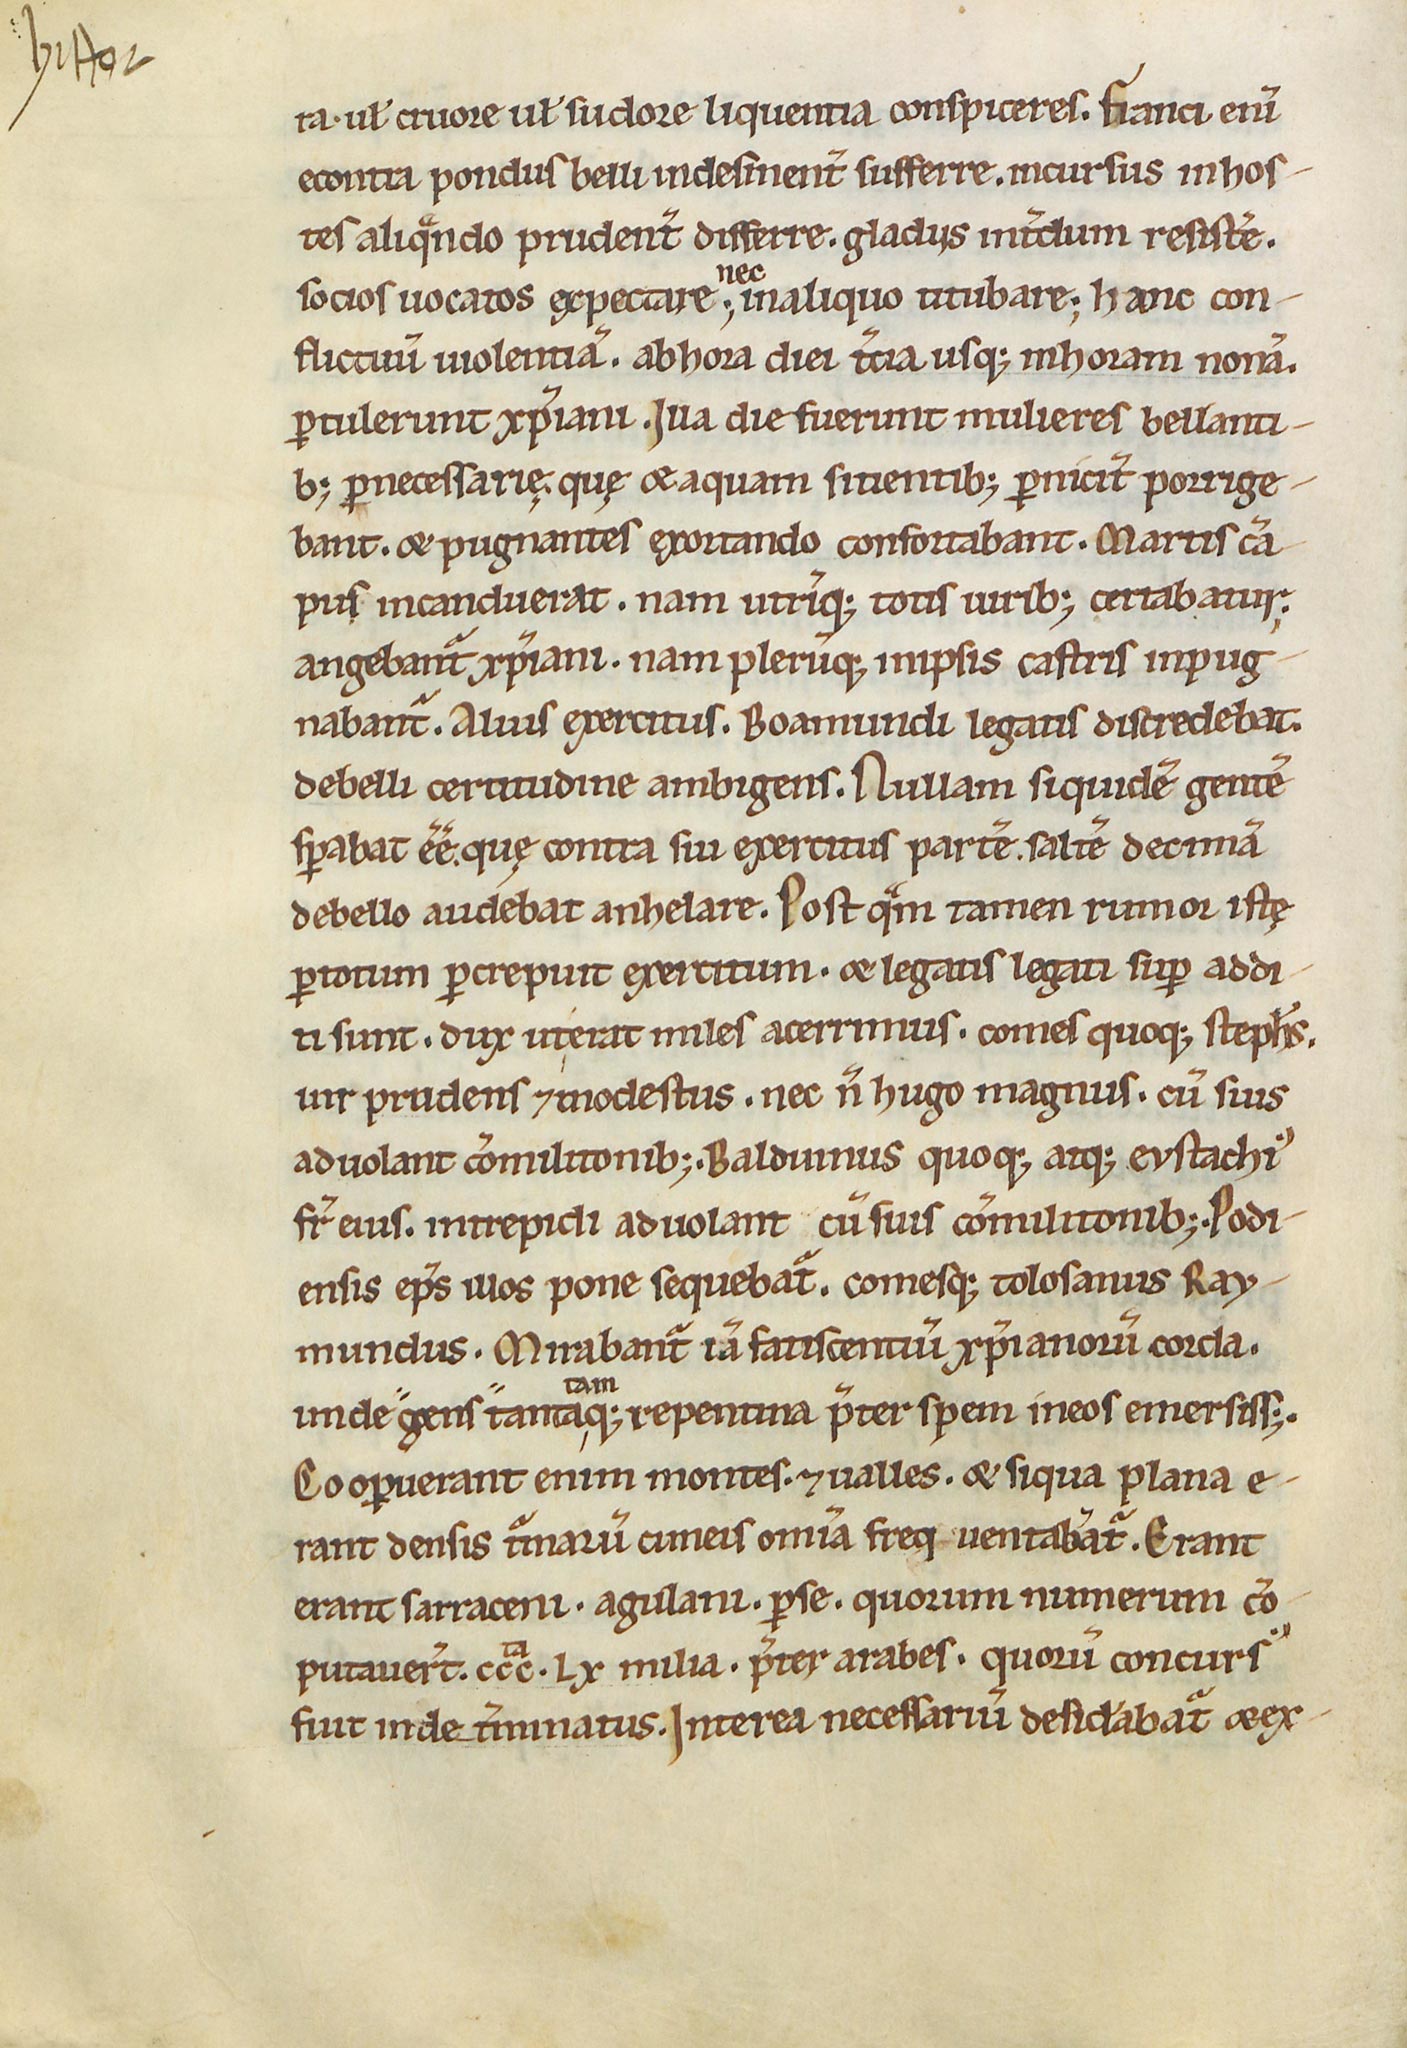 histor
ra· uł cruore uł sudore liquentia conspiceres. franci enī
econtra pondus belli indesinent̄ sufferre. incursus inhos-
tes aliqͣndo prudent̄ differre. gladiis int̄dum resist̄e.
nec
socios uocatos expectare; inaliquo titubare; hanc con-
flictuū uiolentiā. abhora diei t̄cia usq; inhoram nonā.
ꝑtulerunt xp̄iani. Illa die fuerunt mulieres bellanti-
b; ꝑnecessarię. quę & aquam sitientib; ꝑnicit̄ porrige-
bant. & pugnantes exortando confortabant. Martis cā-
pus incanduerat. nam utrīq; totis uirib; certabatur;
angebant᷑ xp̄iani. nam plerūq; inipsis castris inpug-
nabant᷑. Alius exercitus. Boamundi legatis discredebat.
debelli certitudine ambigens. Nullam siquidē gentē
sꝑabat ēē. quę contra sui exercitus partē. saltē decimā
debello audebat anhelare. Post qͣm tamen rumor istę
ꝑtotum ꝑcrepuit exercitum. & legatis legati suꝑ addi-
ti sunt. dux ut erat miles acerrimus. comes quoq; steph̄s.
uir prudens ⁊ modestus. nec n̄ hugo magnus. cū suis
aduolant cōmilitonib;. Balduinus quoq; atq; eustachi᷒
fr̄ eius. intrepidi aduolant cū suis cōmilitonib;. Podi-
ensis ep̄s illos pone sequebat᷑. comesq; tolosanus Ray-
mundus. Mirabant᷑ iā fatiscentiū xp̄ianorū corda.
tam
unde gens tantaq; repentina p̄ter spem ineos emersiss;.
Cooꝑuerant enim montes. ⁊ ualles. & siqua plana e-
rant densis t᷑marū cuneis om̄ia freq uentabāt᷑. Erant
erant sarraceni. agulani. ꝑse. quorum numerum cō-
ta
putauer̄t. ccc. lx milia. p̄ter arabes. quorū concurs᷒
fuit inde t̄minatus. Interea necessariū desid̄abat᷑ & ex-